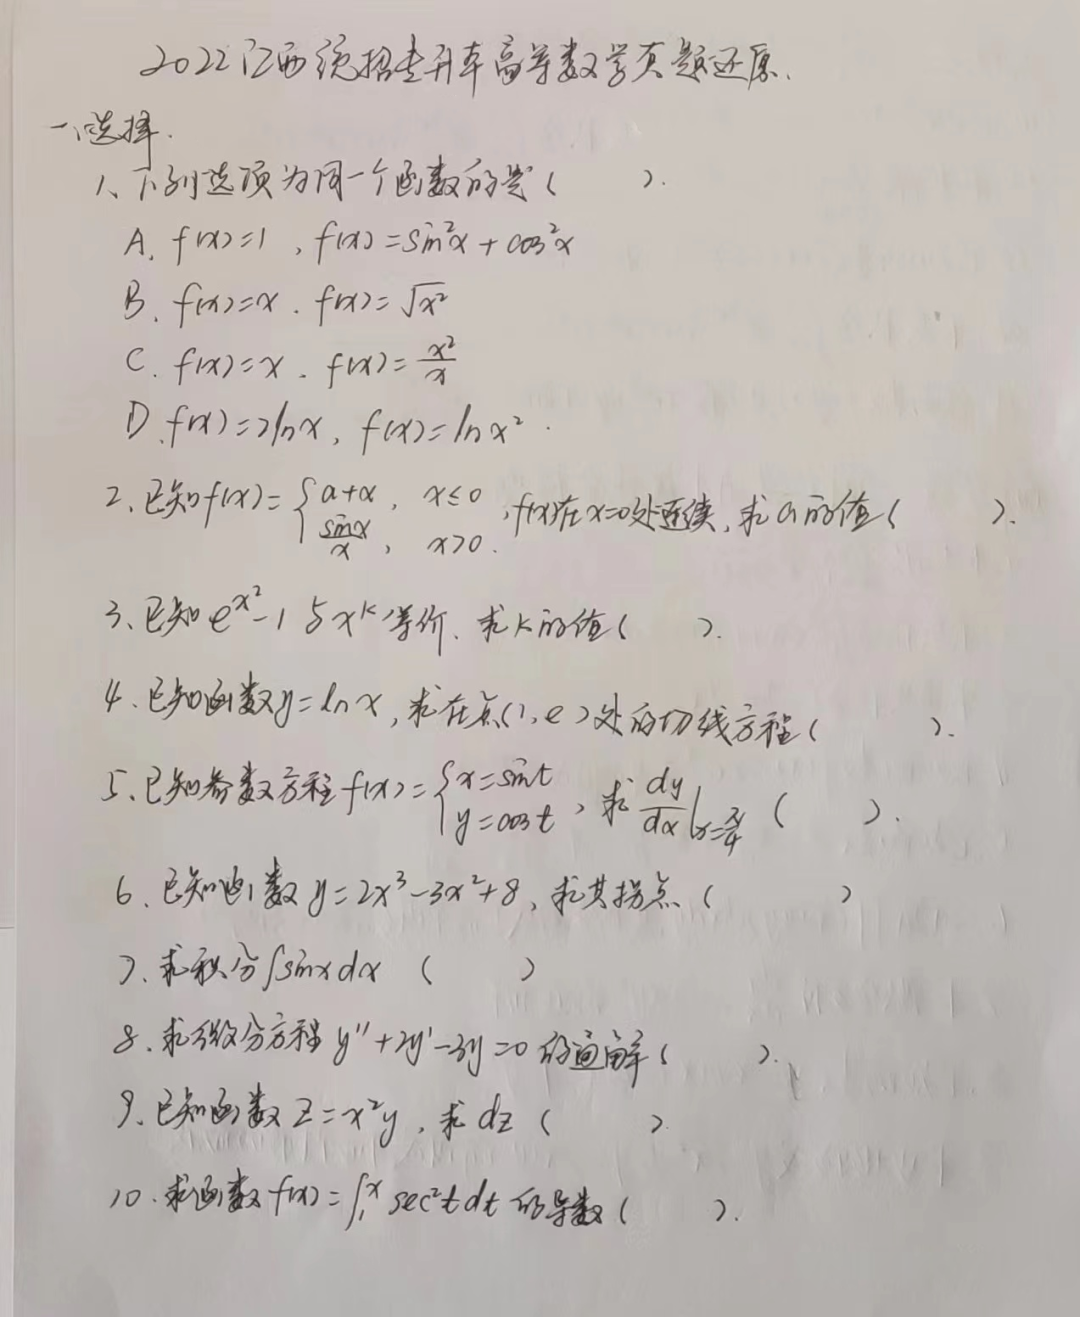 2022江西统招专升本高等数学真题还原.
一、选择.
1、下列选项为同一个函数的是(    ).
A. f(x)=1, f(x)=sin²x+cos²x
B. f(x)=x. f(x)=√x²
C. f(x)=x. f(x)=x²/x
D. f(x)=2lnx, f(x)=lnx².
2、已知f(x)={a+x, x≤0; sinx/x, x>0. ,f(x)在x=0处连续,求a的值(    ).
3、已知e^(x²)-1与x^k等价.求k的值(    ).
4、已知函数y=lnx,求在点(1,e)处的切线方程(    ).
5、已知参数方程f(x)={x=sint; y=cost, 求dy/dx|x=π/4 (    ).
6、已知函数y=2x³-3x²+8,求其拐点(    )
7、求积分∫sinxdx (    )
8、求微分方程y''+2y'-3y=0的通解(    ).
9、已知函数z=x²y,求dz(    ).
10、求函数f(x)=∫₁ˣsec²tdt的导数(    ).